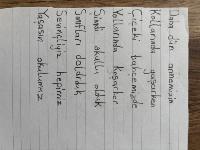 Daha dün annemizin
Kollarında yaşarken
Çiçekli bahçemizde
Yollarında koşarken
Şimdi okullu olduk
Sınıfları doldurduk
Sevinçliyiz hepimiz
Yaşasın okulumuz